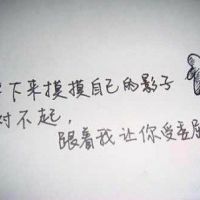 下来摸摸自己的影子
对不起，
跟着我让你受委屈